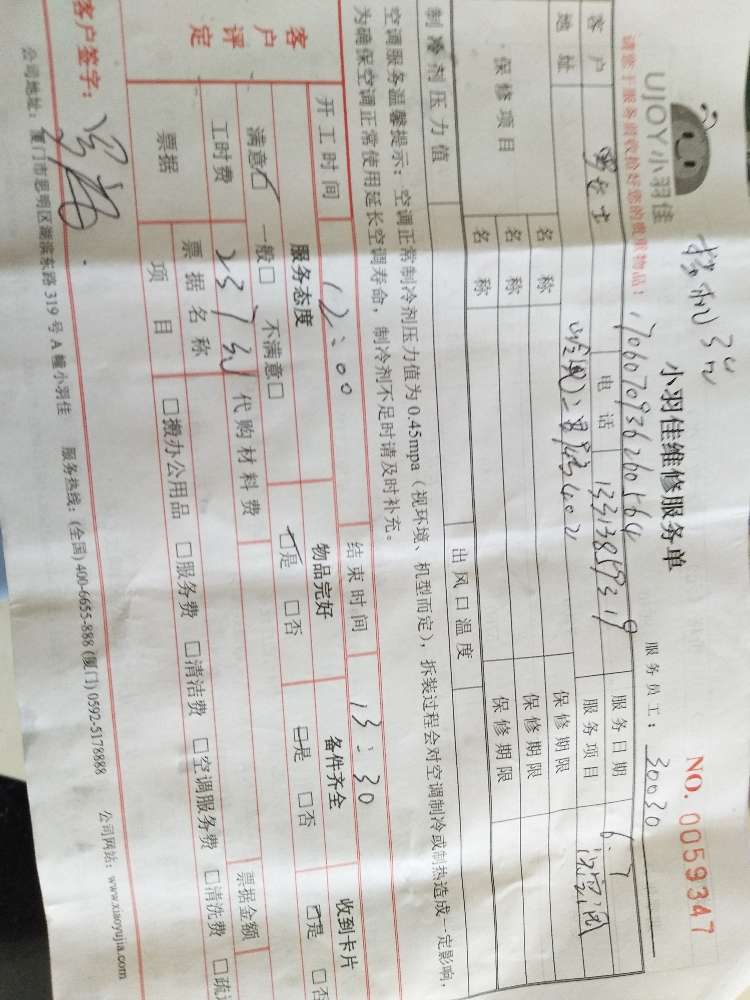 UJOY小羽佳
小羽佳维修服务单
NO. 0059347
请您于服务前收拾好您的贵重物品!
1706070936260564
服务员工: 30030
客户
电话 13313859319
服务日期 6.7
地址
服务项目
保修项目
名称 保修期限
名称 保修期限
名称 保修期限
制冷剂压力值 出风口温度
空调服务温馨提示: 空调正常制冷剂压力值为 0.45mpa (视环境、机型而定), 拆装过程会对空调制冷或制热造成一定影响,
为确保空调正常使用延长空调寿命, 制冷剂不足时请及时补充。
开工时间 12:00 结束时间 13:30
客户评定
服务态度 物品完好 备件齐全 收到卡片
满意□ 一般□ 不满意□ □是 □否 □是 □否 □是 □否
工时费 237元 代购材料费 票据金额
票据 票据名称
项目 □搬办公用品 □服务费 □清洁费 □空调服务费 □清洗费
客户签字:
公司地址: 厦门市思明区湖滨东路 319 号 A 幢小羽佳 服务热线: (全国) 400-6655-888 (厦门) 0592-5178888 公司网站: www.xiaoyujia.com